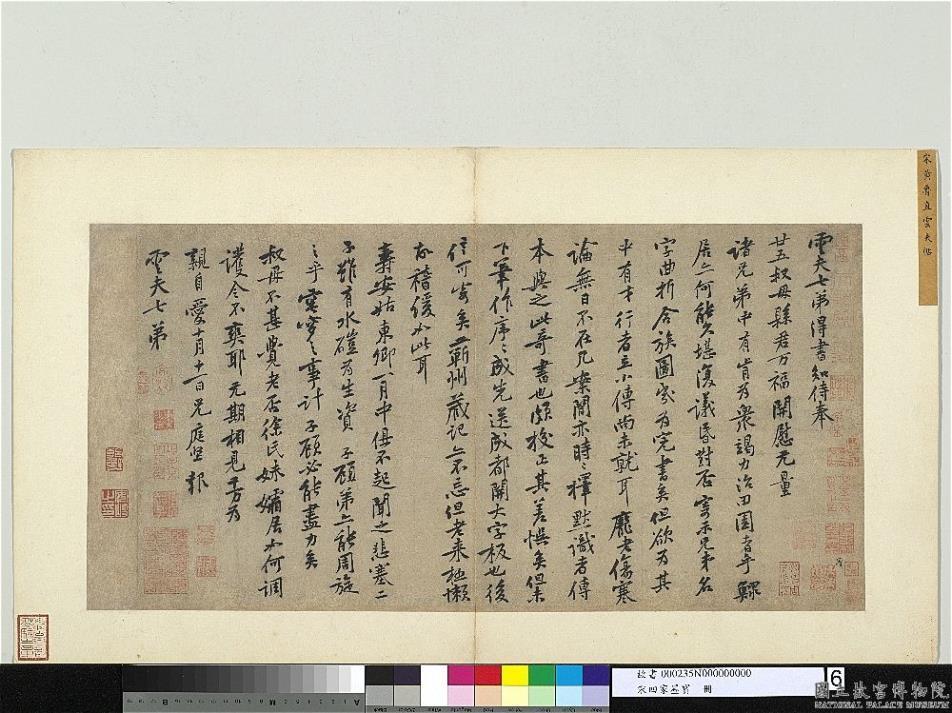 宋黃魯直雲夫帖
雲夫七弟得書知侍奉
廿五叔母縣君万福開慰无量
諸兄弟中有肯為衆竭力治田園者乎鰥
居亦何能久堪復議昏對否寄示兄弟名
字曲折合族圖實為完書矣但欲為其
中有才行者立小傳尚未就耳龐老傷寒
論無日不在几案間亦時時擇默識者傳
本與之此奇書也頗校正其差悞矣但未
下筆作序序成先送成都開大字板也後
信可寄矣蘄州藏記亦不忘但老來極懶
故稽緩如此耳
壽安姑東卿一月中俱不起聞之悲塞二
子雖有水磑為生資子顧弟亦能周旋
之乎窀穸之事計子顧必能盡力矣
叔母不甚覺老否徐氏妹孀居如何調
護令不爽耶无期相見千万為
親自愛十月十一日兄庭堅報
雲夫七弟
故書000235N000000000
宋四家墨寶 冊
6
國立故宮博物院
NATIONAL PALACE MUSEUM